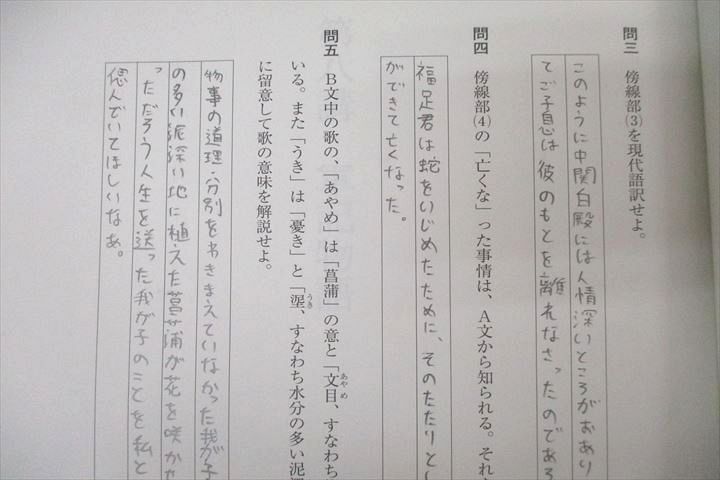 問三 傍線部⑶を現代語訳せよ。
このように中関白殿には人情深いところがおあり
てご子息は彼のもとを離れなさったのである
問四 傍線部⑷の「亡くな」った事情は、A文から知られる。それ
福足君は蛇をいじめたために、そのたたりとし
ができて亡くなった。
問五 B文中の歌の、「あやめ」は「菖蒲」の意と「文目、すなわち
あやめ
いる。また「うき」は「憂き」と「埿、すなわち水分の多い泥
うき
に留意して歌の意味を解説せよ。
物事の道理・分別をわきまえていなかった我が子
の多い泥深い地に植えた菖蒲が花を咲かせ
っただろう人生を送った我が子のことを私と
偲んでいてほしいなあ。